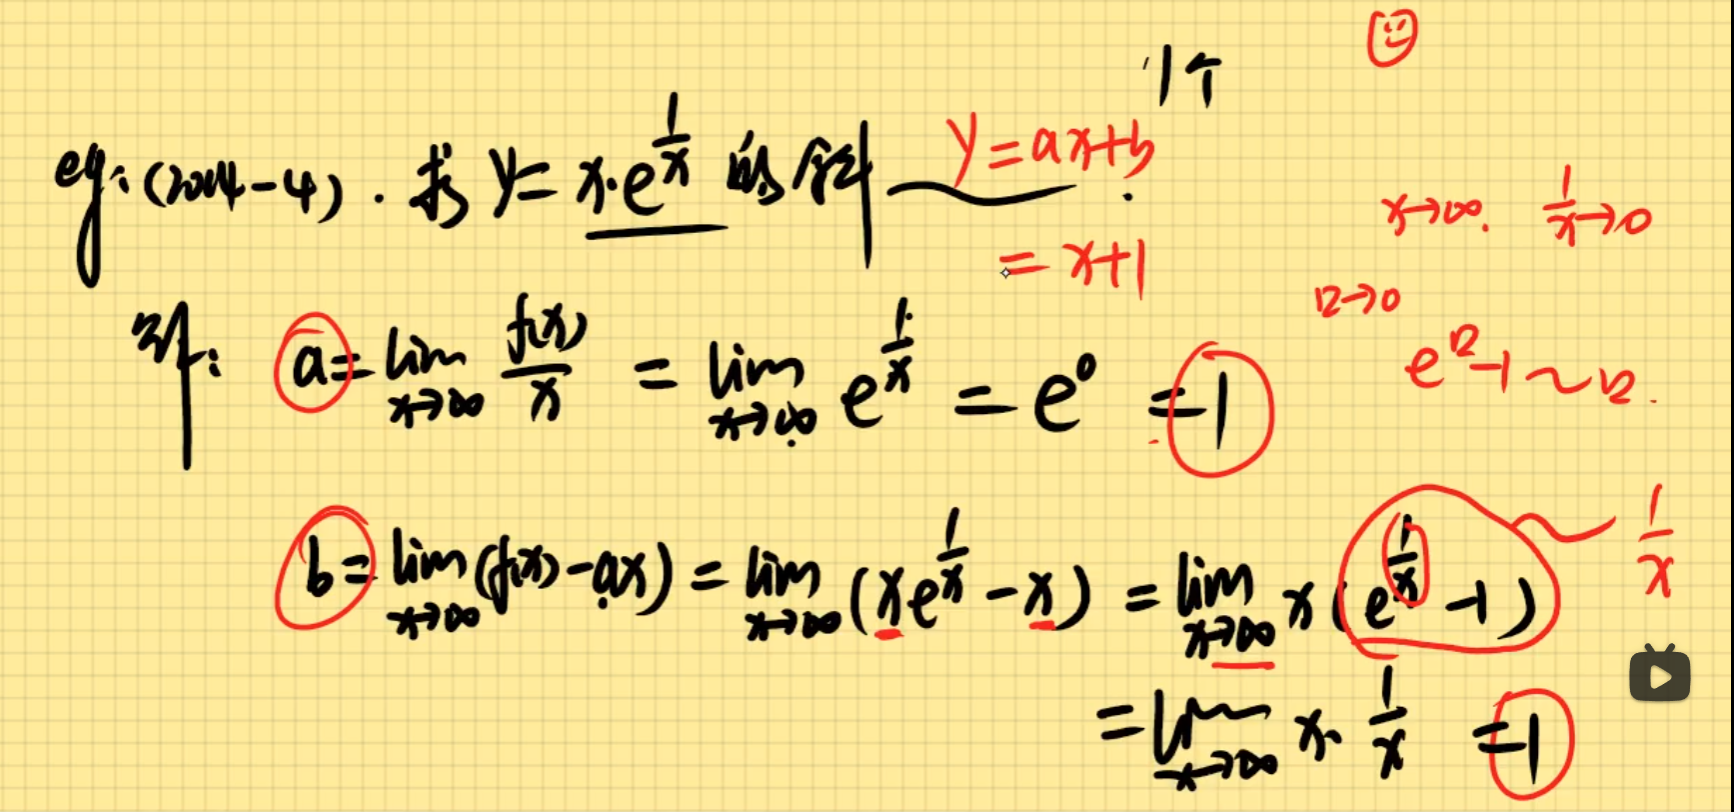 1个
eg: (2014-4). 求 y = x·e^{\frac{1}{x}} 的斜 y = ax+b
= x+1
x→∞. \frac{1}{x}→0
解: a = \lim_{x→∞} \frac{f(x)}{x} = \lim_{x→∞} e^{\frac{1}{x}} = e^0 = 1
→0
e -1 ~
b = \lim_{x→∞} (f(x)-ax) = \lim_{x→∞} (xe^{\frac{1}{x}} - x) = \lim_{x→∞} x(e^{\frac{1}{x}} - 1) \frac{1}{x}
= \lim_{x→∞} x·\frac{1}{x} = 1